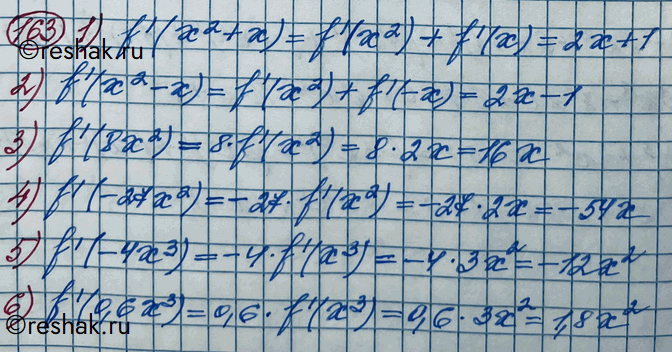 163 1) f'(x²+x) = f'(x²) + f'(x) = 2x+1
2) f'(x²-x) = f'(x²) + f'(-x) = 2x-1
3) f'(8x²) = 8·f'(x²) = 8·2x = 16x
4) f'(-27x²) = -27·f'(x²) = -27·2x = -54x
5) f'(-4x³) = -4·f'(x³) = -4·3x² = -12x²
6) f'(0,6x³) = 0,6·f'(x³) = 0,6·3x² = 1,8x²
©reshak.ru
©reshak.ru